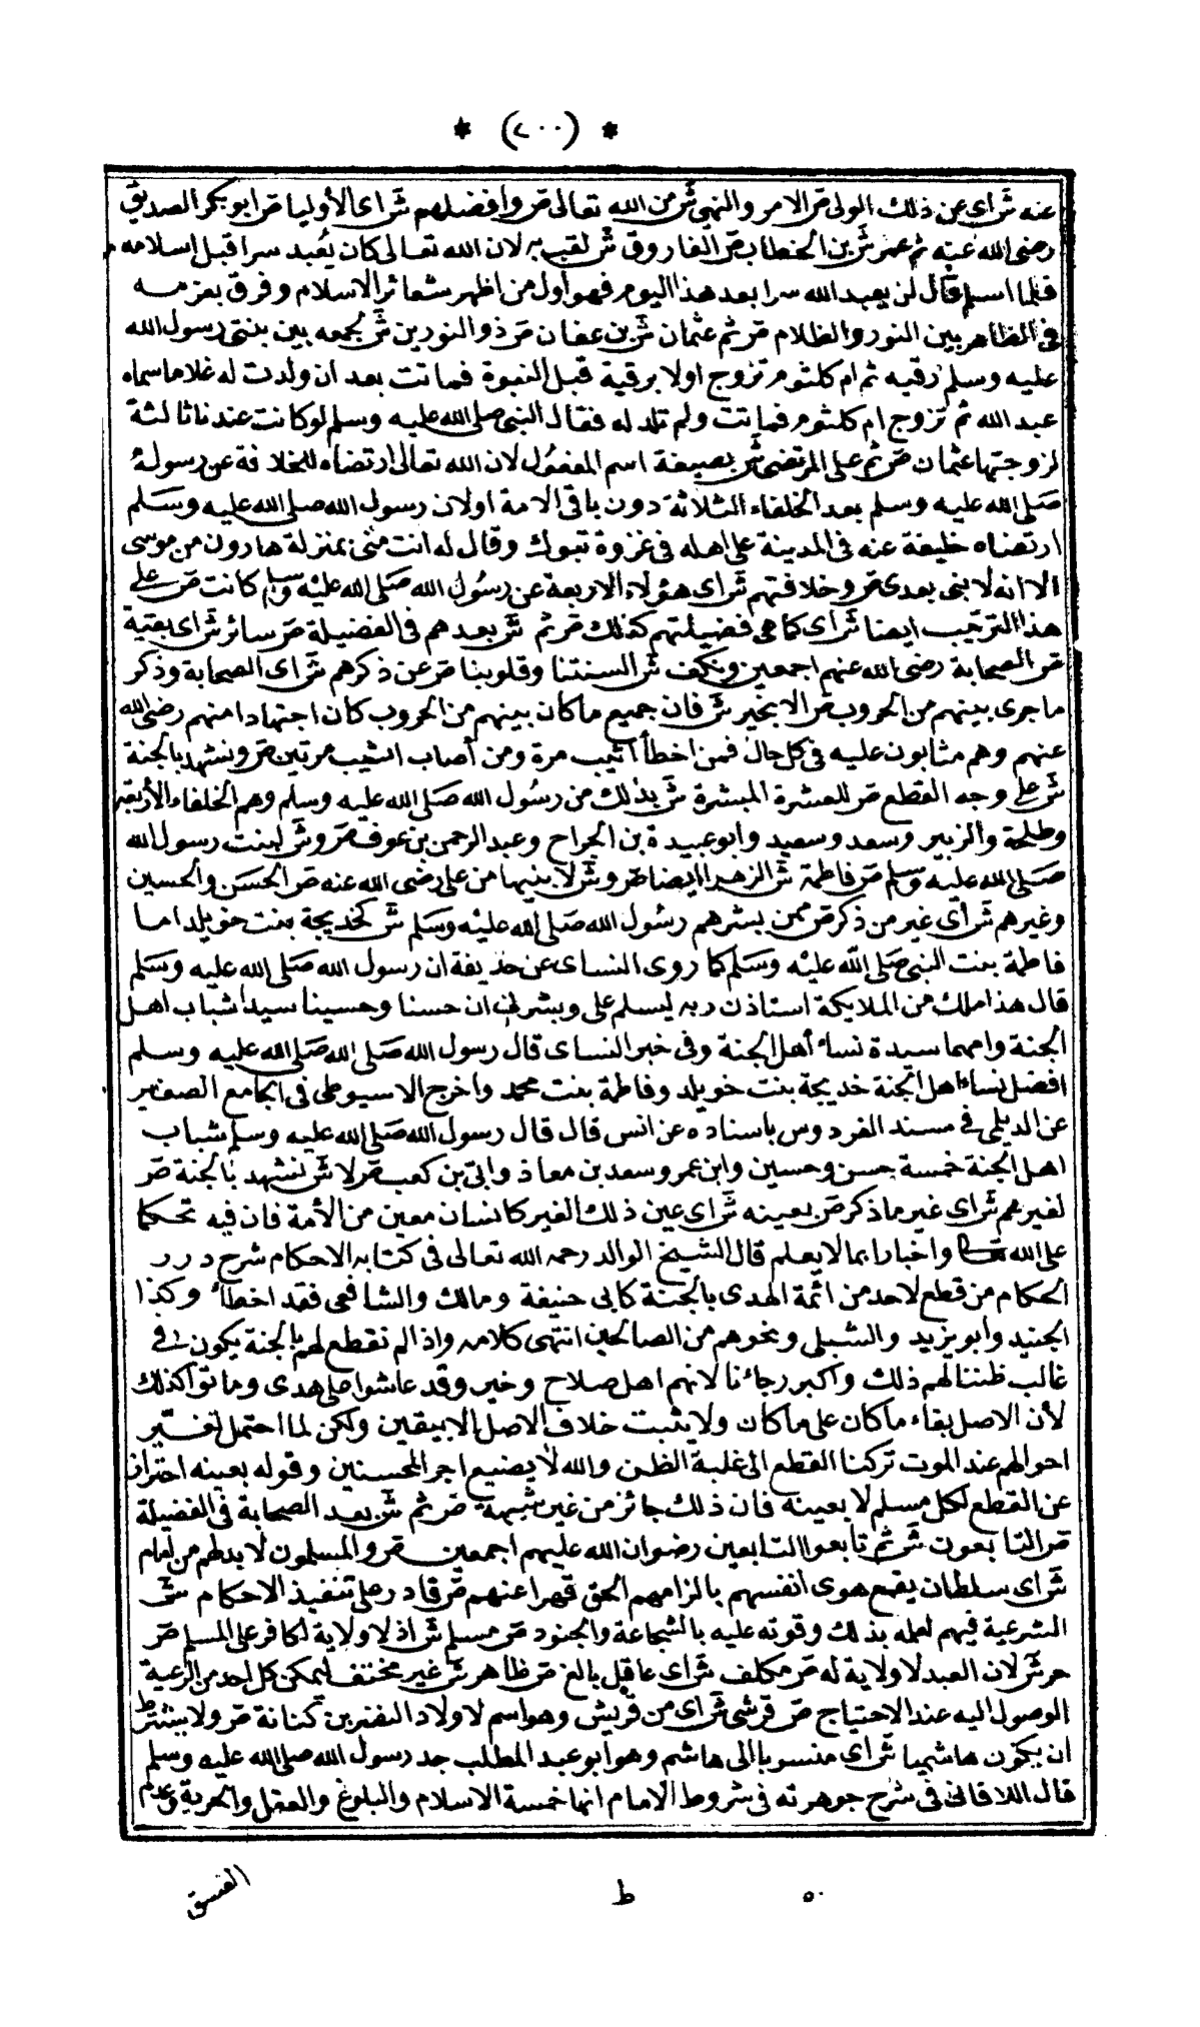 * (٢٠٠) *
عنه ش اى عن ذلك الولى ص الامر والنهى ش من الله تعالى ص وافضلهم ش اى الأوليا ص ابو بكر الصديق
رضى الله عنه ثم عمر ش بن الخطاب ص الفاروق ش لقب به لان الله تعالى كان يُعبد سرا قبل اسلامه
فلما اسلم قال لن يعبد الله سرا بعد هذا اليوم فهو اول من اظهر شعائر الاسلام وفرق بعزمه
فى الظاهر بين النور والظلام ص ثم عثمان ش بن عفان ص ذو النورين ش لجمعه بين بنتى رسول الله
عليه وسلم رقيه ثم ام كلثوم تزوج اولا برقية قبل النبوة فماتت بعد ان ولدت له غلاما سماه
عبد الله ثم تزوج ام كلثوم فماتت ولم تلد له فقال النبى صلى الله عليه وسلم لو كانت عندنا ثالثة
لزوجتها عثمان ص ثم على المرتضى ش بصيغة اسم المفعول لان الله تعالى ارتضاه للخلافة عن رسوله
صلى الله عليه وسلم بعد الخلفاء الثلاثة دون باقى الامة او لان رسول الله صلى الله عليه وسلم
ارتضاه خليفة عنه فى المدينة على اهله فى غزوة تبوك وقال له انت منى بمنزلة هارون من موسى
الا انه لا نبى بعدى ص وخلافتهم ش اى هؤلاء الاربعة عن رسول الله صلى الله عليه وسلم كانت ص على
هذا الترتيب ايضا ش اى كما هى فضيلتهم كذلك ص ثم ش بعدهم فى الفضيلة ص سائر ش اى بقية
ص الصحابة رضى الله عنهم اجمعين ونكف ش السنتنا وقلوبنا ص عن ذكرهم ش اى الصحابة وذكر
ما جرى بينهم من الحروب ص الا بخير ش فان جميع ما كان بينهم من الحروب كان اجتهادا منهم رضى الله
عنهم وهم مثابون عليه فى كل حال فمن اخطأ اثيب مرة ومن أصاب اثيب مرتين ص ونشهد بالجنة
ش على وجه القطع ص للعشرة المبشرة ش بذلك من رسول الله صلى الله عليه وسلم وهم الخلفاء الأربعة
وطلحة والزبير وسعد وسعيد وابو عبيدة بن الجراح وعبد الرحمن بن عوف ص و ش لبنت رسول الله
صلى الله عليه وسلم ص فاطمة ش الزهرا ايضا ص و ش لابنيها من على رضى الله عنه ص الحسن والحسين
وغيرهم ش اى غير من ذكر ص ممن بشرهم رسول الله صلى الله عليه وسلم ش كخديجة بنت خويلد اما
فاطمة بنت النبى صلى الله عليه وسلم كما روى النساى عن حذيفة ان رسول الله صلى الله عليه وسلم
قال هذا ملك من الملايكة استاذن ربه ليسلم على وبشرنى ان حسنا وحسينا سيدا شباب اهل
الجنة وامهما سيدة نساء أهل الجنة وفى خبر النساى قال رسول الله صلى الله صلى الله عليه وسلم
افضل نساء اهل الجنة خديجة بنت خويلد وفاطمة بنت محمد واخرج الاسيوطى فى الجامع الصغير
عن الديلمى فى مسند الفردوس باسناده عن انس قال قال رسول الله صلى الله عليه وسلم شباب
اهل الجنة خمسة حسن وحسين وابن عمر وسعد بن معاذ وابى بن كعب ص لا ش نشهد بالجنة ص
لغيرهم ش اى غير ما ذكر ص بعينه ش اى عين ذلك الغير كانسان معين من الأمة فان فيه تحكما
على الله تعالى واخبارا بما لا يعلم قال الشيخ الوالد رحمه الله تعالى فى كتابه الاحكام شرح درر
الحكام من قطع لاحد من ائمة الهدى بالجنة كابى حنيفة ومالك والشافعى فقد اخطأ وكذا
الجنيد وابو يزيد والشبلى ونحوهم من الصالحين انتهى كلامه واذا لم نقطع لهم بالجنة يكون فى
غالب ظننا لهم ذلك واكبر رجائنا لانهم اهل صلاح وخير وقد عاشوا على هدى وماتوا كذلك
لأن الاصل بقاء ما كان على ما كان ولا يثبت خلاف الاصل الا بيقين ولكن لما احتمل تغيير
احوالهم عند الموت تركنا القطع الى غلبة الظن والله لا يضيع اجر المحسنين وقوله بعينه احتراز
عن القطع لكل مسلم لا بعينه فان ذلك جائز من غير شبهة ص ثم ش بعد الصحابة فى الفضيلة
ص التابعون ش ثم تابعوا التابعين رضوان الله عليهم اجمعين ص والمسلمون لا بد لهم من امام
ش اى سلطان يقمع هوى انفسهم بالزامهم الحق قهرا عنهم ص قادر على تنفيذ الاحكام ش
الشرعية فيهم لعلمه بذلك وقوته عليه بالشجاعة والجنود ص مسلم ش اذ لا ولاية لكافر على المسلم ص
حر ش لان العبد لا ولاية له ص مكلف ش اى عاقل بالغ ص ظاهر ش غير مختف ليمكن كل احد من الرعية
الوصول اليه عند الاحتياج ص قرشى ش اى من قريش وهو اسم لاولاد النضر بن كنانة ص ولا يشترط
ان يكون هاشميا ش اى منسوبا الى هاشم وهو ابو عبد المطلب جد رسول الله صلى الله عليه وسلم
قال اللاقانى فى شرح جوهرته فى شروط الامام انها خمسة الاسلام والبلوغ والعقل والحرية وعدم
٥٠ ط الفسق